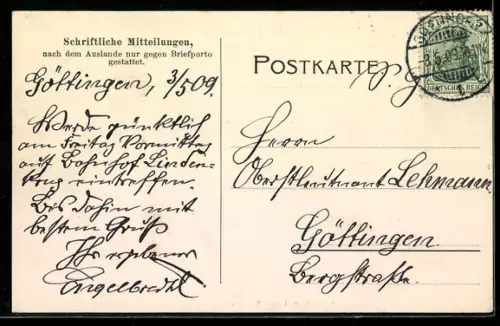 Schriftliche Mitteilungen,
nach dem Auslande nur gegen Briefporto
gestattet.
Göttingen, 3/5 09.
Werde pünktlich
am Freitag Vormittag
auf Bahnhof Linden-
krug eintreffen.
Bis dahin mit
bestem Gruß
Ihr ergebener
Engelbrecht
POSTKARTE
DEUTSCHES REICH
Herrn
Oberstleutnant Lehmann
Göttingen
Bergstraße.